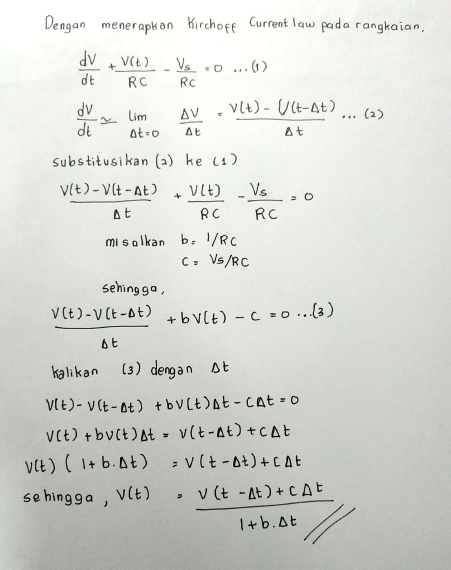 Dengan menerapkan Kirchoff Current law pada rangkaian.
dV/dt + V(t)/RC - Vs/RC = 0 ...(1)
dV/dt ≃ lim Δt=0 ΔV/Δt = V(t) - V(t-Δt)/Δt ... (2)
substitusikan (2) ke (1)
V(t) - V(t-Δt)/Δt + V(t)/RC - Vs/RC = 0
misalkan b = 1/RC
c = Vs/RC
sehingga,
V(t) - V(t-Δt)/Δt + bV(t) - c = 0 ...(3)
kalikan (3) dengan Δt
V(t) - V(t-Δt) + bV(t)Δt - cΔt = 0
V(t) + bV(t)Δt = V(t-Δt) + cΔt
V(t) ( 1 + b.Δt) = V(t-Δt) + cΔt
sehingga, V(t) = V(t-Δt) + cΔt/1 + b.Δt